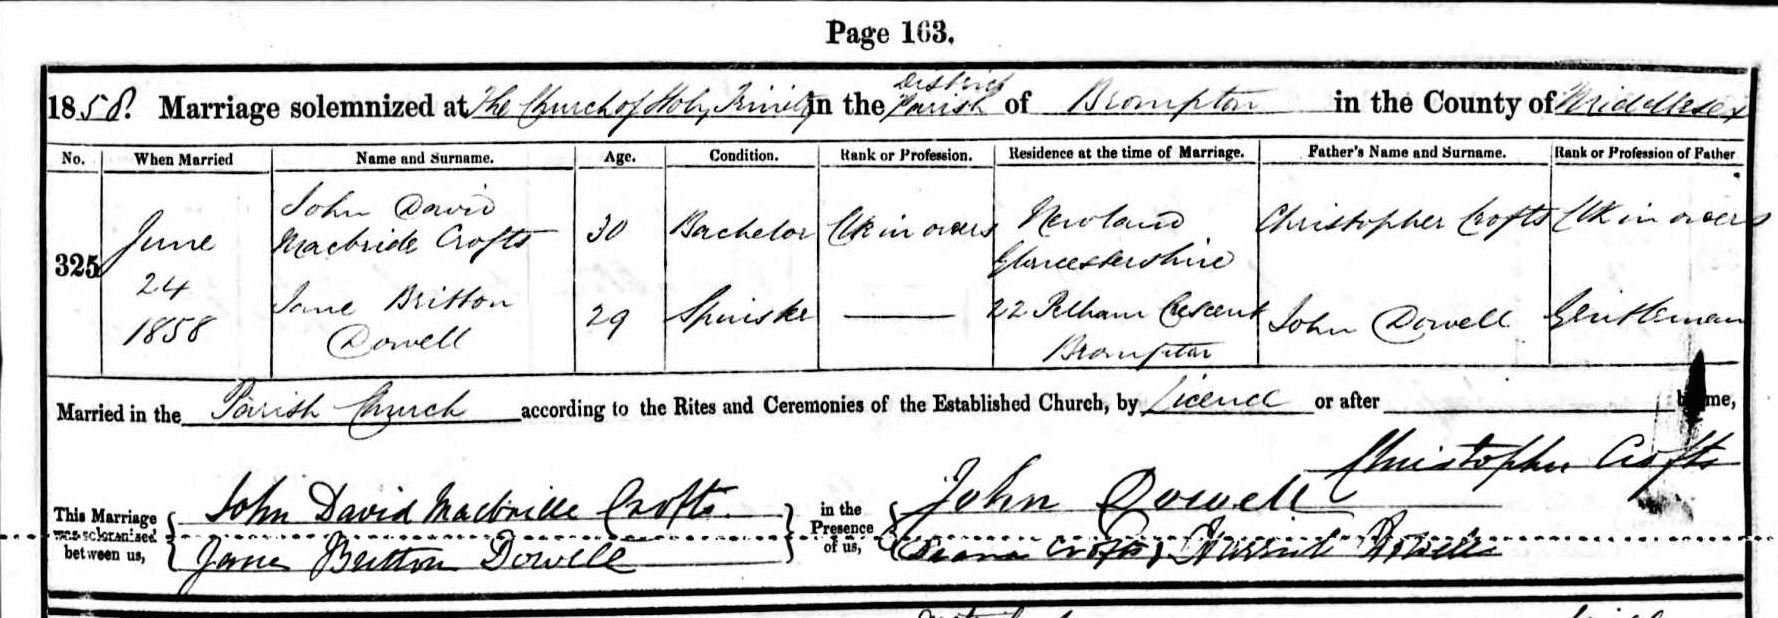 Page 163.
1858. Marriage solemnized at The Church of Holy Trinity in the District Parish of Brompton in the County of Middlesex
No. When Married Name and Surname. Age. Condition. Rank or Profession. Residence at the time of Marriage. Father's Name and Surname. Rank or Profession of Father
325 June 24 1858
John David Macbride Crofts 30 Bachelor Clk in orders Newland Gloucestershire Christopher Crofts Clk in orders
Jane Britton Dowell 29 Spinster 22 Pelham Crescent Brompton John Dowell Gentleman
Married in the Parish Church according to the Rites and Ceremonies of the Established Church, by Licence or after by me,
Christopher Crofts
This Marriage was solemnised between us,
John David Macbride Crofts
Jane Britton Dowell
in the Presence of us,
John Dowell
Crofts Harriet